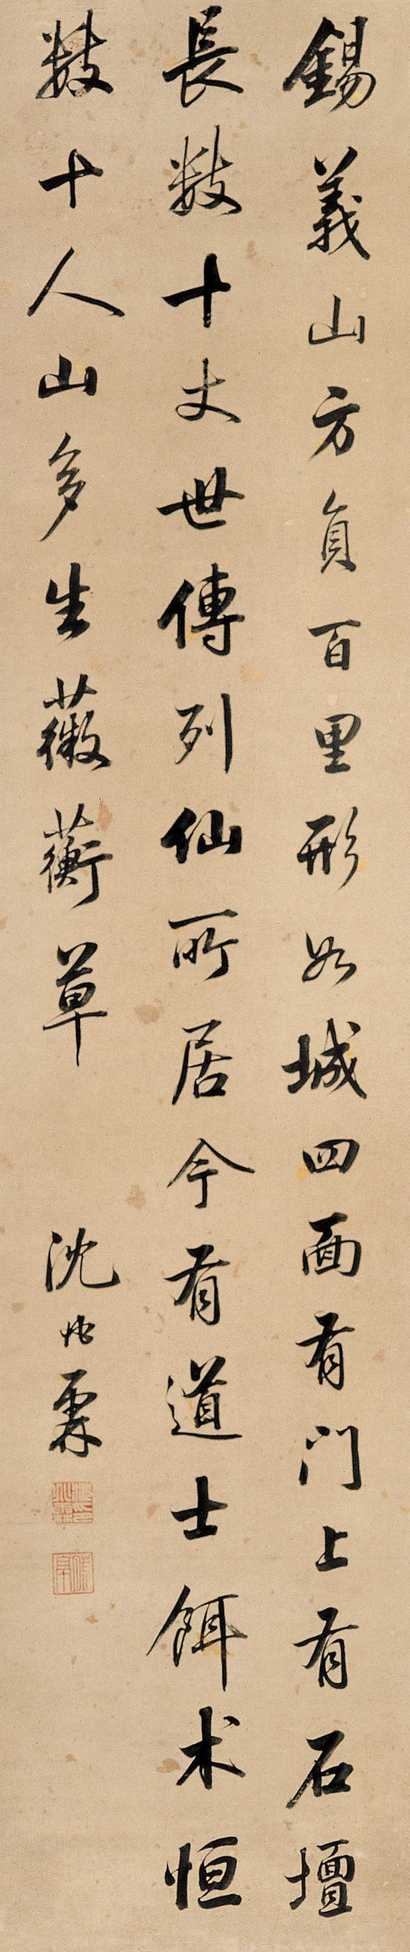 錫義山方員百里形如城四面有門上有石壇
長數十丈世傳列仙所居今有道士餌术恒
數十人山多生薇蘅草
沈兆霖